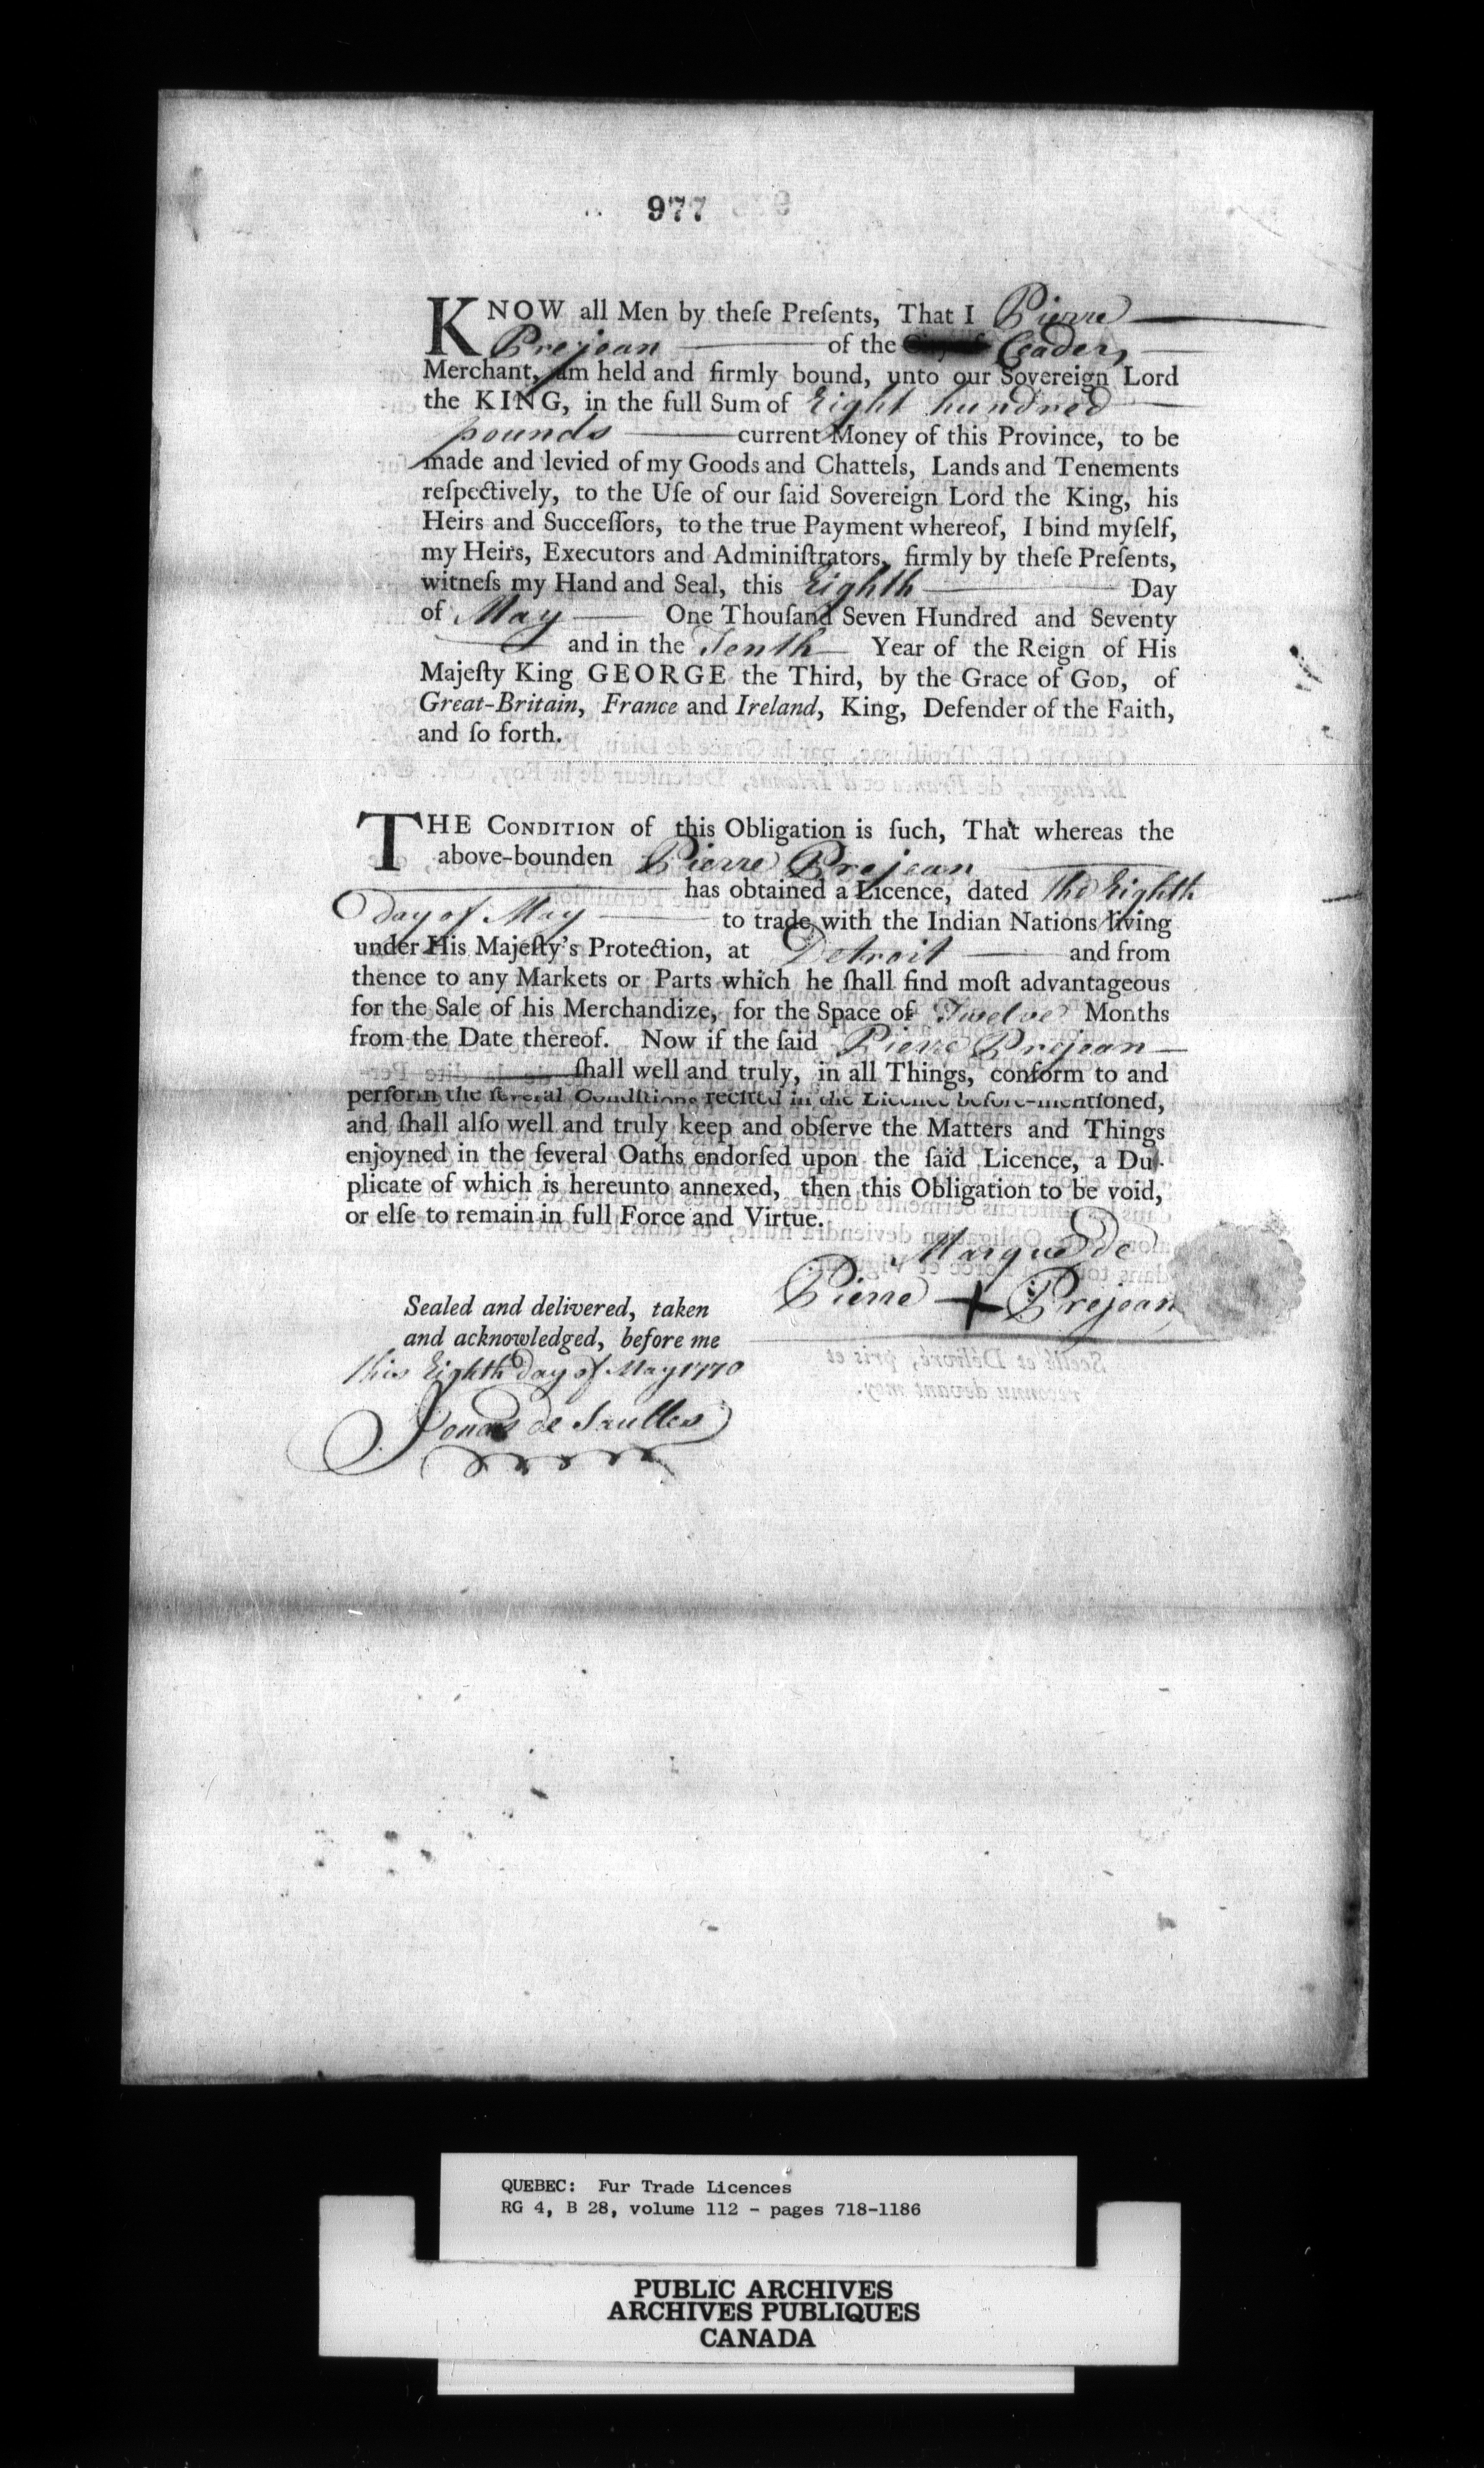 977
KNOW all Men by theſe Preſents, That I Pierre
Prejean of the Ceaders
Merchant, am held and firmly bound, unto our Sovereign Lord
the KING, in the full Sum of Eight hundred
pounds current Money of this Province, to be
made and levied of my Goods and Chattels, Lands and Tenements
reſpectively, to the Uſe of our ſaid Sovereign Lord the King, his
Heirs and Succeſſors, to the true Payment whereof, I bind myſelf,
my Heirs, Executors and Adminiſtrators, firmly by theſe Preſents,
witneſs my Hand and Seal, this Eighth Day
of May One Thouſand Seven Hundred and Seventy
and in the Tenth Year of the Reign of His
Majeſty King GEORGE the Third, by the Grace of GOD, of
Great-Britain, France and Ireland, King, Defender of the Faith,
and ſo forth.
THE CONDITION of this Obligation is ſuch, That whereas the
above-bounden Pierre Prejean
has obtained a Licence, dated the Eighth
day of May to trade with the Indian Nations living
under His Majeſty's Protection, at Detroit and from
thence to any Markets or Parts which he ſhall find moſt advantageous
for the Sale of his Merchandize, for the Space of Twelve Months
from the Date thereof. Now if the ſaid Pierre Prejean
ſhall well and truly, in all Things, conform to and
perform the ſeveral Conditions recited in the Licence before-mentioned,
and ſhall alſo well and truly keep and obſerve the Matters and Things
enjoyned in the ſeveral Oaths endorſed upon the ſaid Licence, a Du-
plicate of which is hereunto annexed, then this Obligation to be void,
or elſe to remain in full Force and Virtue.
Marque de
Pierre + Prejean
Sealed and delivered, taken
and acknowledged, before me
this Eighth Day of May 1770
Jonas de Saulles
QUEBEC: Fur Trade Licences
RG 4, B 28, volume 112 - pages 718-1186
PUBLIC ARCHIVES
ARCHIVES PUBLIQUES
CANADA